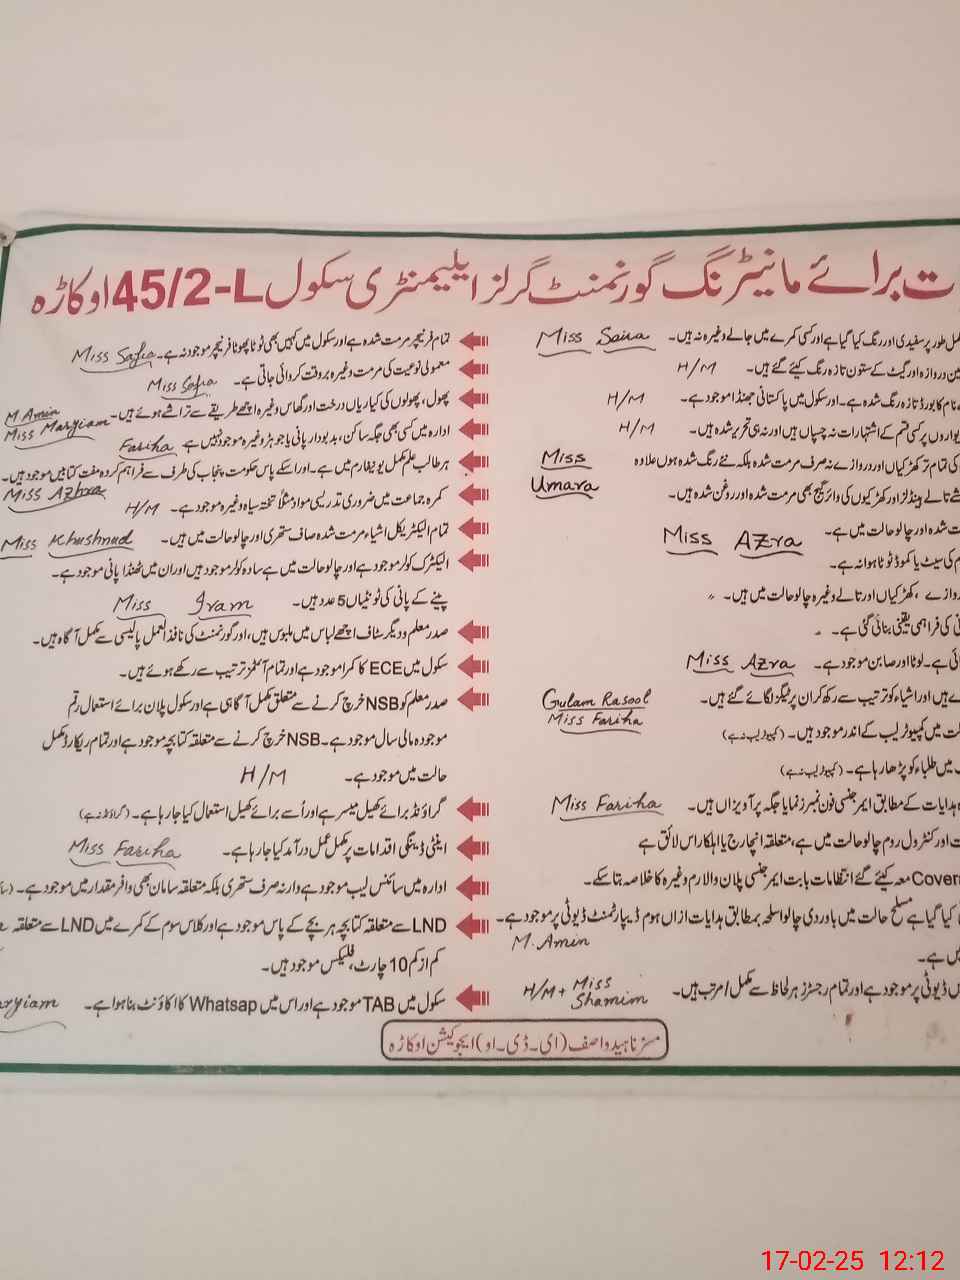 ت برائے مانیٹرنگ گورنمنٹ گرلز ایلیمنٹری سکول 45/2-L اوکاڑہ
مل طور پر سفیدی اور رنگ کیا گیا ہے اور کسی کمرے میں جالے وغیرہ نہ ہیں۔ Miss Saira
ن دروازہ اور گیٹ کے ستون تازہ رنگ کیئے گئے ہیں۔ H/M
ے نام کا بورڈ تازہ رنگ شدہ ہے۔ اور سکول میں پاکستانی جھنڈا موجود ہے۔ H/M
یواروں پر کسی قسم کے اشتہارات نہ چسپاں ہیں اور نہ ہی تحریر شدہ ہیں۔ H/M
کی تمام تر کھڑکیاں اور دروازے نہ صرف مرمت شدہ بلکہ نئے رنگ شدہ ہوں علاوہ Miss
شے تالے ہینڈلز اور کھڑکیوں کی وائر گیج بھی مرمت شدہ اور روغن شدہ ہیں۔ Umara
ت شدہ اور چالو حالت میں ہے۔ Miss Azra
م کی سیٹ یا کموڈ ٹوٹا ہوا نہ ہے۔
روازے ، کھڑکیاں اور تالے وغیرہ چالو حالت میں ہیں۔ "
نی کی فراہمی یقینی بنائی گئی ہے۔
ائی ہے۔ لوٹا اور صابن موجود ہے۔ Miss Azra
ے ہیں اور اشیاء کو ترتیب سے رکھ کر ان پر ٹیگز لگائے گئے ہیں۔ Gulam Rasool
Miss Fariha
لت میں کمپیوٹر لیب کے اندر موجود ہیں۔ (کمپیوٹر لیب نہ ہے)
ب میں طلباء کو پڑھا رہا ہے۔ (کمپیوٹر لیب نہ ہے)
ہ ہدایات کے مطابق ایمرجنسی فون نمبرز نمایا جگہ پر آویزاں ہیں۔ Miss Fariha
ت اور کنٹرول روم چالو حالت میں ہے، متعلقہ انچارج یا اہلکار اس لائق ہے
Cover معہ کیئے گئے انتظامات بابت ایمرجنسی پلان والارم وغیرہ کا خلاصہ بتا سکے۔
کیا گیا ہے مسلح حالت میں باوردی چالو اسلحہ بمطابق ہدایات ازاں ہوم ڈیپارٹمنٹ ڈیوٹی پر موجود ہے۔
M. Amin
یں ہے۔
س ڈیوٹی پر موجود ہے اور تمام رجسٹرز ہر لحاظ سے مکمل/مرتب ہیں۔ H/M + Miss Shamim
تمام فرنیچر مرمت شدہ ہے اور سکول میں کہیں بھی ٹوٹا پھوٹا فرنیچر موجود نہ ہے۔ Miss Safia
معمولی نوعیت کی مرمت وغیرہ بروقت کروائی جاتی ہے۔ Miss Safia
پھول، پھولوں کی کیاریاں درخت اور گھاس وغیرہ اچھے طریقے سے تراشے ہوئے ہیں۔ M. Amin
Miss Maryiam
ادارہ میں کسی بھی جگہ ساکن، بدبودار پانی یا جوہڑ وغیرہ موجود نہیں ہے Fariha
ہر طالب علم مکمل یونیفارم میں ہے۔ اور اسکے پاس حکومت پنجاب کی طرف سے فراہم کردہ مفت کتابیں موجود ہیں۔
Miss Azhra
کمرہ جماعت میں ضروری تدریسی مواد مثلاً تختہ سیاہ وغیرہ موجود ہے۔ H/M
تمام الیکٹریکل اشیاء مرمت شدہ صاف ستھری اور چالو حالت میں ہیں۔ Miss Khushnud
الیکٹرک کولر موجود ہے اور چالو حالت میں ہے سادہ کولر موجود ہیں اور ان میں ٹھنڈا پانی موجود ہے۔
پینے کے پانی کی ٹونٹیاں 5 عدد ہیں۔ Miss Iram
صدر معلم و دیگر سٹاف اچھے لباس میں ملبوس ہیں، اور گورنمنٹ کی نافذ العمل پالیسی سے مکمل آگاہ ہیں۔
سکول میں ECE کا کمرا موجود ہے اور تمام آئٹمز ترتیب سے رکھے ہوئے ہیں۔
صدر معلم کو NSB خرچ کرنے سے متعلق مکمل آگاہی ہے اور سکول پلان برائے استعمال رقم
موجودہ مالی سال موجود ہے۔ NSB خرچ کرنے سے متعلقہ کتابچہ موجود ہے اور تمام ریکارڈ مکمل
حالت میں موجود ہے۔ H/M
گراؤنڈ برائے کھیل میسر ہے اور اُسے برائے کھیل استعمال کیا جا رہا ہے۔ (گراؤنڈ نہ ہے)
اینٹی ڈینگی اقدامات پر مکمل عمل درآمد کیا جا رہا ہے۔ Miss Fariha
ادارہ میں سائنس لیب موجود ہے اور نہ صرف ستھری بلکہ متعلقہ سامان بھی وافر مقدار میں موجود ہے۔
LND سے متعلقہ کتابچہ ہر بچے کے پاس موجود ہے اور کلاس سوم کے کمرے میں LND سے متعلقہ
کم از کم 10 چارٹ، فلیکس موجود ہیں۔
سکول میں TAB موجود ہے اور اس میں Whatsap کا اکاؤنٹ بنا ہوا ہے۔ aryiam
مسز ناہید واصف (ای۔ڈی۔او) ایجوکیشن اوکاڑہ
17-02-25 12:12